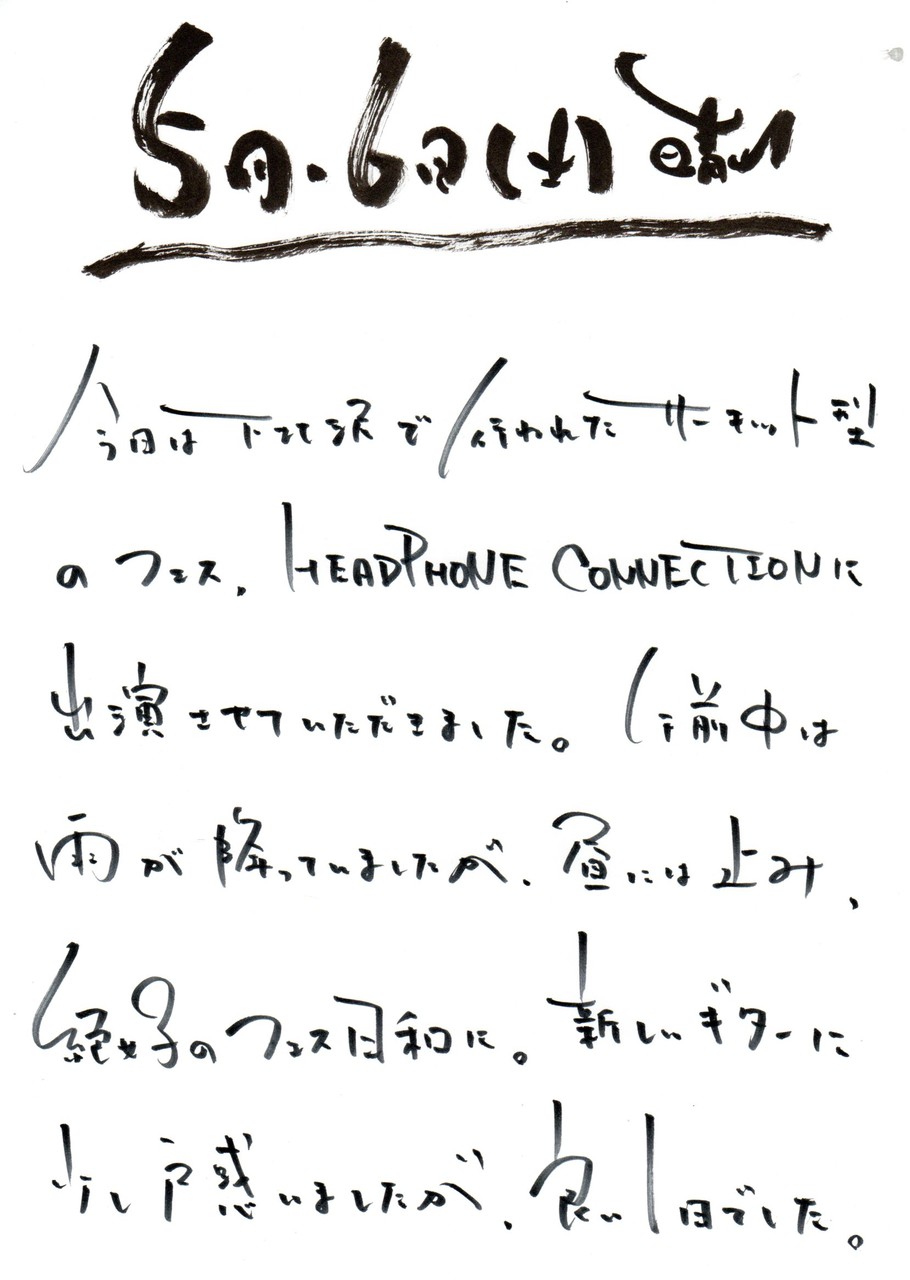 5月・6日(土)晴れ
今日は下北沢で行われたサーキット型
のフェス、HEADPHONE CONNECTIONに
出演させていただきました。午前中は
雨が降っていましたが、昼には止み、
絶好のフェス日和に。新しいギターに
少し戸惑いましたが、良い1日でした。